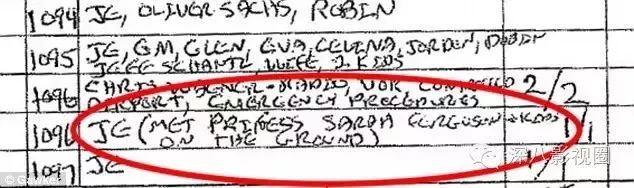 1094 JE, OLIVER SACHS, ROBIN
1095 JE, GM, GLEN, EVA, CELINA, JORDEN, DUBIN
WIFE, 2 KIDS
1096 2/2
AIRPORT, EMERGENCY PROCEDURES
1096 JE (MET PRINCESS SARAH FERGUSON + KIDS 1/1
ON THE GROUND)
1097 JE
© Gawker
深八影视圈